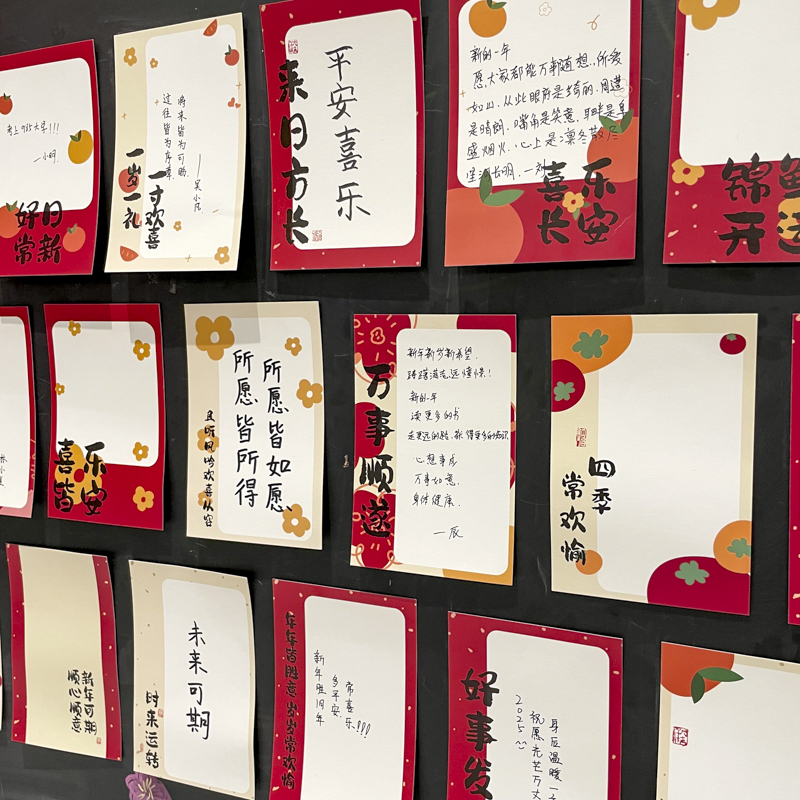 考上985大学!!!
一小明
日新
好常
将来皆为可盼
过往皆为序章
——吴小凡
一寸欢喜
一岁一礼
平安喜乐
来日方长
新的一年
愿大家都能万事随想，所爱
如山，从此眼底是绮丽，周遭
是晴朗，嘴角是笑意，耳畔是阜
盛烟火，心上是凛冬散尽
星河长明.一刘
乐安
喜长
锦
开运
乐安
喜皆
所愿皆如愿
所愿皆所得
且听风吟欢喜从容
新年新岁新希望，
踌躇满志远憧憬！
新的一年
读更多的书
走更远的路，获得更多的知识
心想事成
万事如意
身体健康
一辰
万事顺遂
四季
常欢愉
新年可期
顺心顺意
未来可期
时来运转
年年皆胜意 岁岁常欢愉
常喜乐!!!
多平安
新年胜旧年
好事发
身后温暖一
祝愿光芒万丈
2025